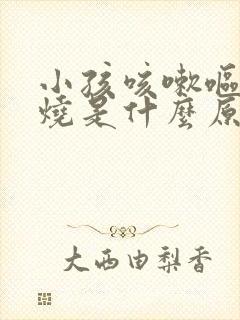 小孩咳嗽嘔
燒是什麼原
大西由梨香